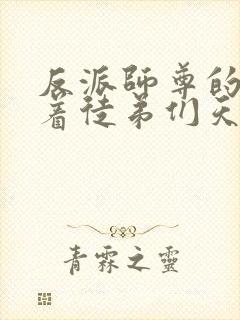 反派師尊的
着徒弟们天
青霖之靈